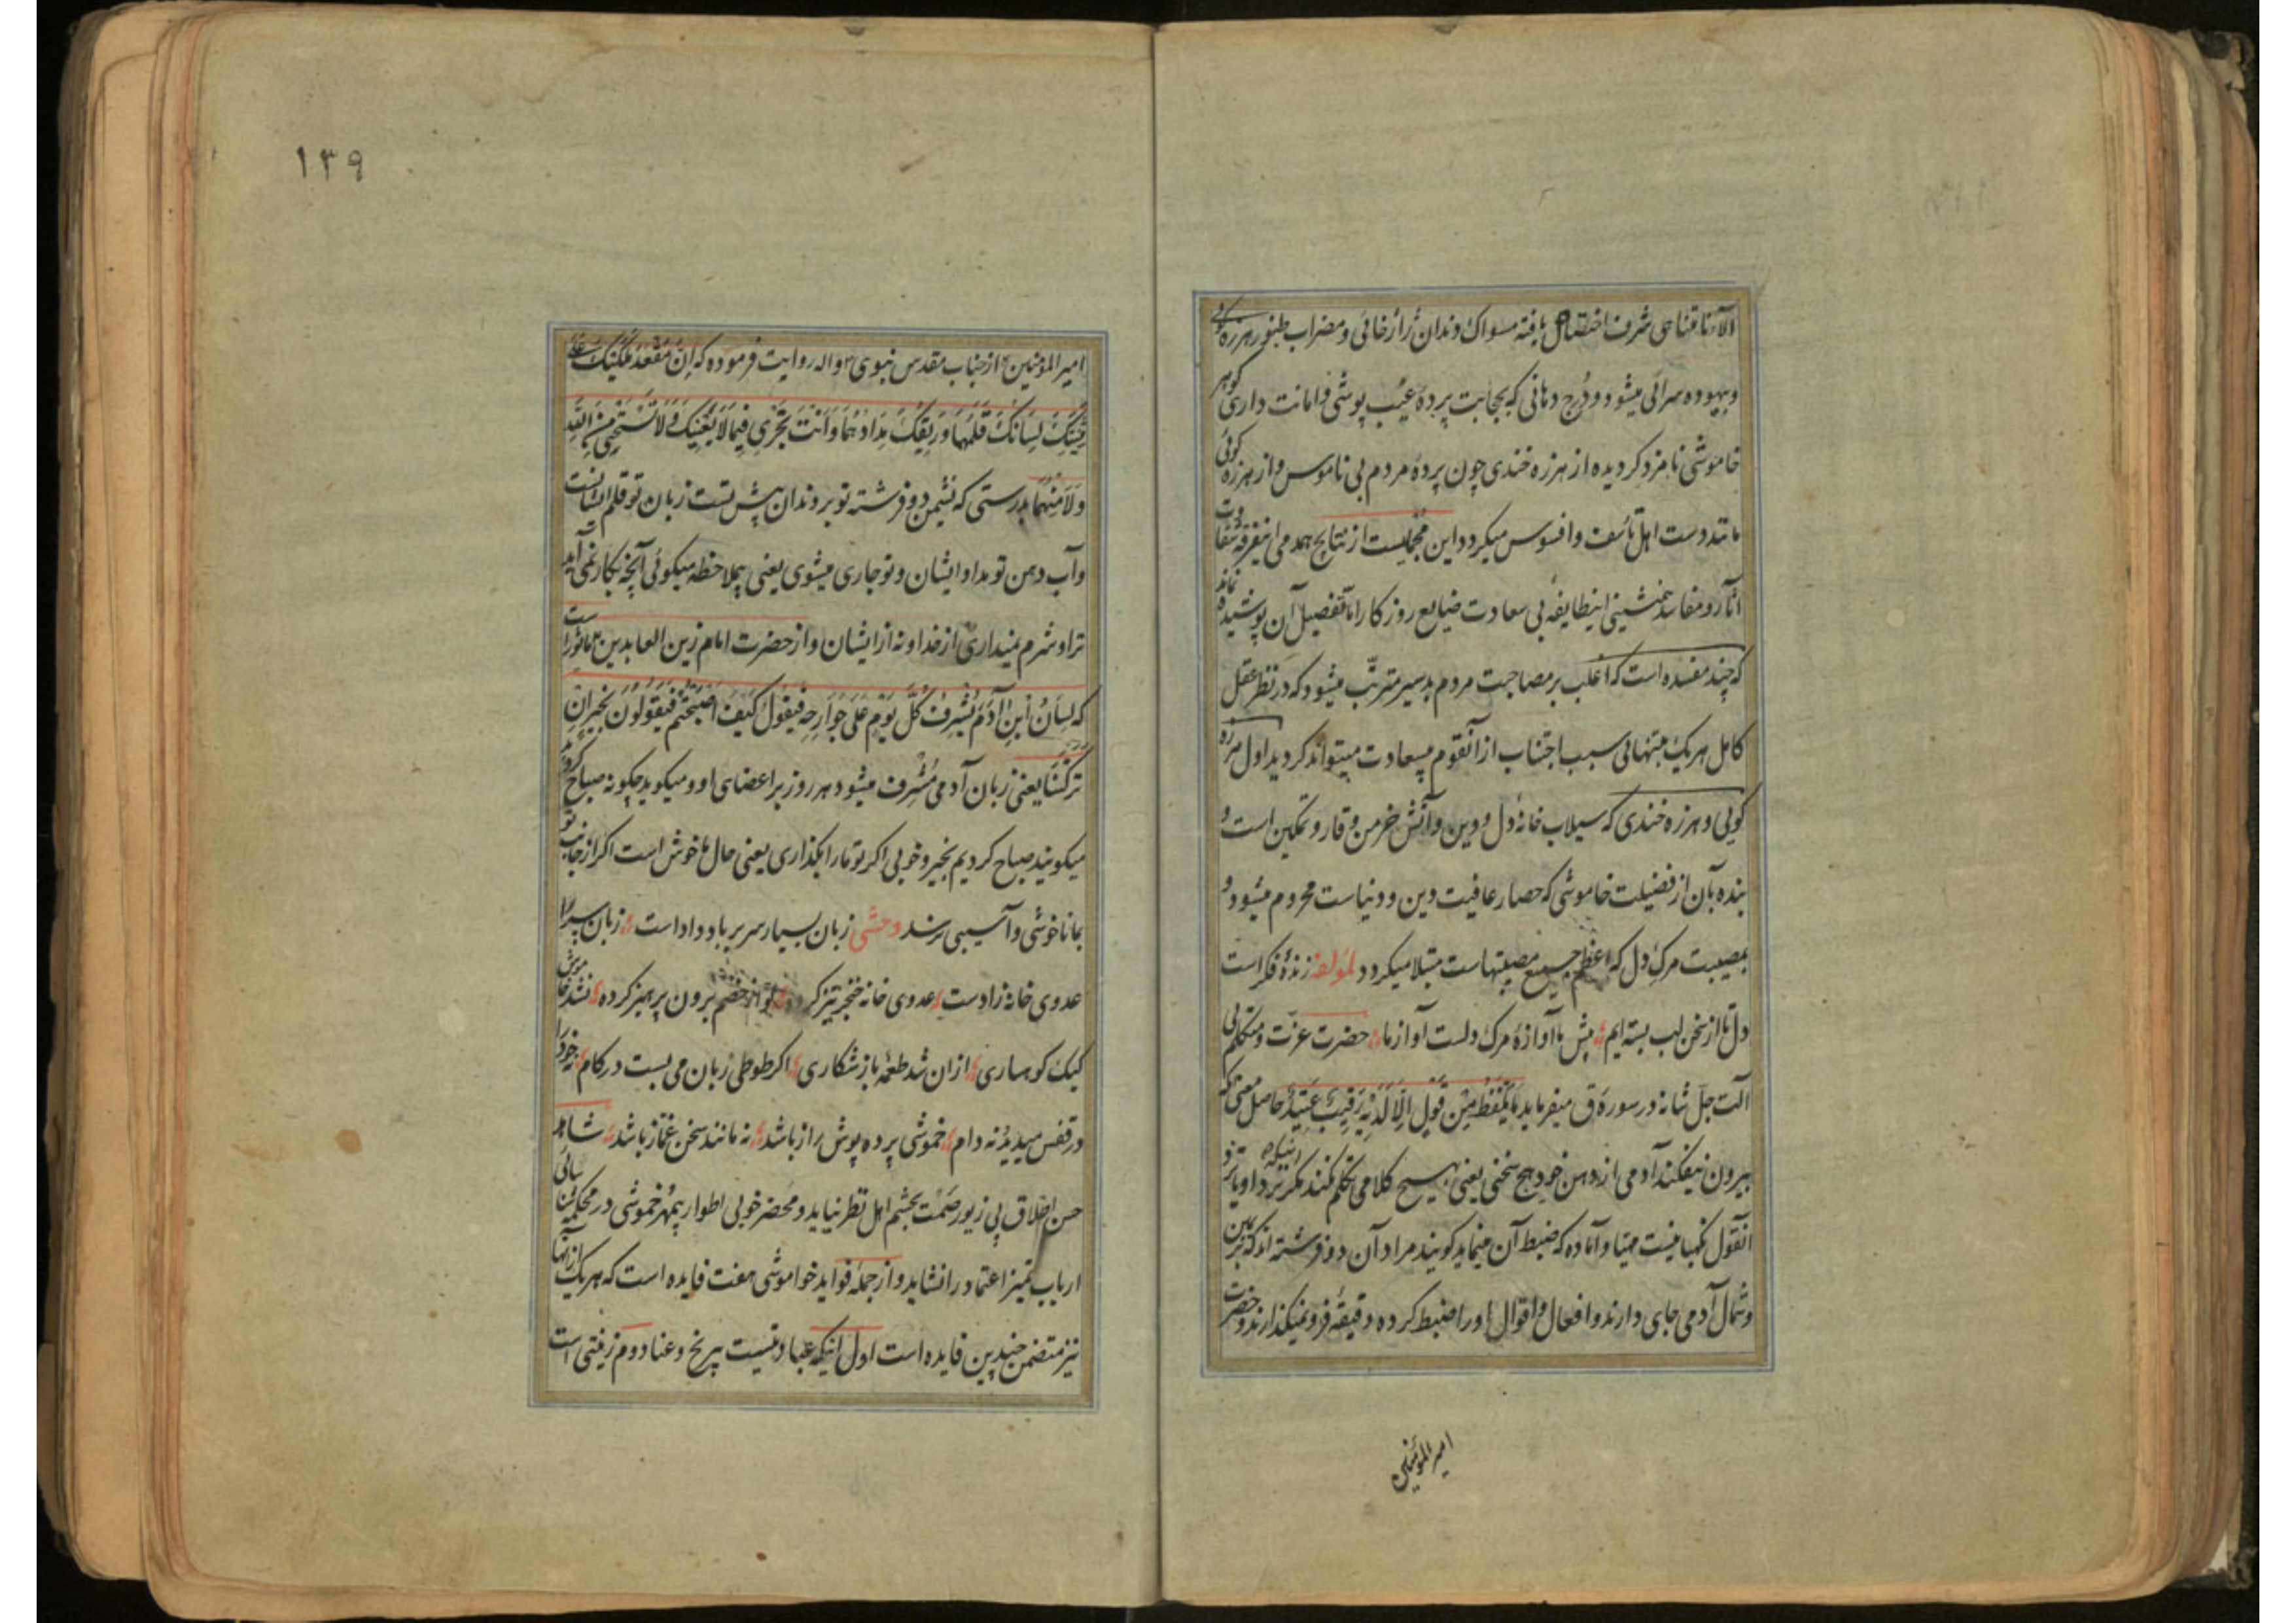 الآء نامتناهی شرف اختصاص یافته مسواک دندان ژاژخائی و مضراب طنبور هرزه
و بیهوده سرائی میشود و درج دهانی که بحجابت پرده عیب پوشی و امانت داری گوهر
خاموشی نامزد کردیده از هرزه خندی چون پرده مردم بی ناموس و از هرزه کوئی
مانند دست اهل تأسف و افسوس میکردد این مجملیست از نتایج همدمی اینفرقه شقاوت
آثار و مفاسد همنشینی اینطایفه بی سعادت ضایع روزکار اما تفصیل آن پوشیده نماند
که چند مفسده است که اغلب بر مصاحبت مردم بد سیر مترتب میشود که در نظر عقل
کامل هر یک بتنهائی سبب اجتناب از آنقوم بیسعادت میتواند کردید اول هرزه
کویی و هرزه خندی که سیلاب خانه دل و دین و آتش خرمن وقار و تمکین است و
بنده بآن از فضیلت خاموشی که حصار عافیت دین و دنیاست محروم میشود و
بمصیبت مرک دل که اعظم جمیع مصیبتهاست مبتلا میکردد لمؤلفه زنده فکر است
دل تا از سخن لب بسته ایم پیش ما آوازه مرک دلست آواز ما حضرت عزت و متکلم بی
آلت جل شانه در سوره ق میفرماید ما یلفظ من قول الا لدیه رقیب عتید حاصل معنی که
بیرون نیفکند آدمی از دهن خود هیچ سخنی یعنی بهیچ کلامی تکلم نکند مکر اینکه نزد او یا نزد
آنقول نکهبانیست مهیا و آماده که ضبط آن مینماید کویند مراد آن دو فرشته اند که بر یمین
و شمال آدمی جای دارند و افعال و اقوال او را ضبط کرده دقیقه فرو نمیکذارند و حضرت
امیر المؤمنین
١٣٩
امیر المؤمنین از جناب مقدس نبوی واله روایت فرموده که ان مقعد ملکیک علی
ثنیتیک لسانک قلمهما و ریقک مدادهما و انت تجری فیما لا یعنیک و لا تستحیی من الله
ولا منهما بدرستی که نشیمن دو فرشته تو بر دندان پیش تست زبان تو قلم ایشانست
و آب دهن تو مداد ایشان و تو جاری میشوی یعنی بیملاحظه میکوئی آنچه بکار نمی آید
ترا و شرم نمیداری از خدا و نه از ایشان و از حضرت امام زین العابدین مأثور است
که لسان ابن آدم یشرف کل یوم علی جوارحه فیقول کیف اصبحتم فیقولون بخیر ان
ترکتنا یعنی زبان آدمی مشرف میشود هر روز بر اعضای او و میکوید چکونه صباح کردید
میکویند صباح کردیم بخیر و خوبی اکر تو ما را بکذاری یعنی حال ما خوش است اکر از جانب تو
بما ناخوشی و آسیبی نرسد وحشی زبان بسیار سر بر باد داده است زبان سر را
عدوی خانه زادست عدوی خانه خنجر تیز کرده تو از خصم برون پرهیز کرده نشد خاموش
کبک کوهساری از آن شد طعمه باز شکاری اکر طوطی زبان می بست در کام نه خود را
در قفس میدید نه دام خموشی پرده پوش راز باشد نه مانند سخن غماز باشد شاهد
حسن اخلاق بی زیور صمت بچشم اهل نظر نیاید و محضر خوبی اطوار بیمهر خموشی در محکمه شناسائی
ارباب تمیز اعتماد را نشاید و از جمله فواید خواموشی هفت فایده است که هر یک از آنها
نیز متضمن چندین فایده است اول اینکه عبادتیست بیرنج و عنا دوم زینتی است